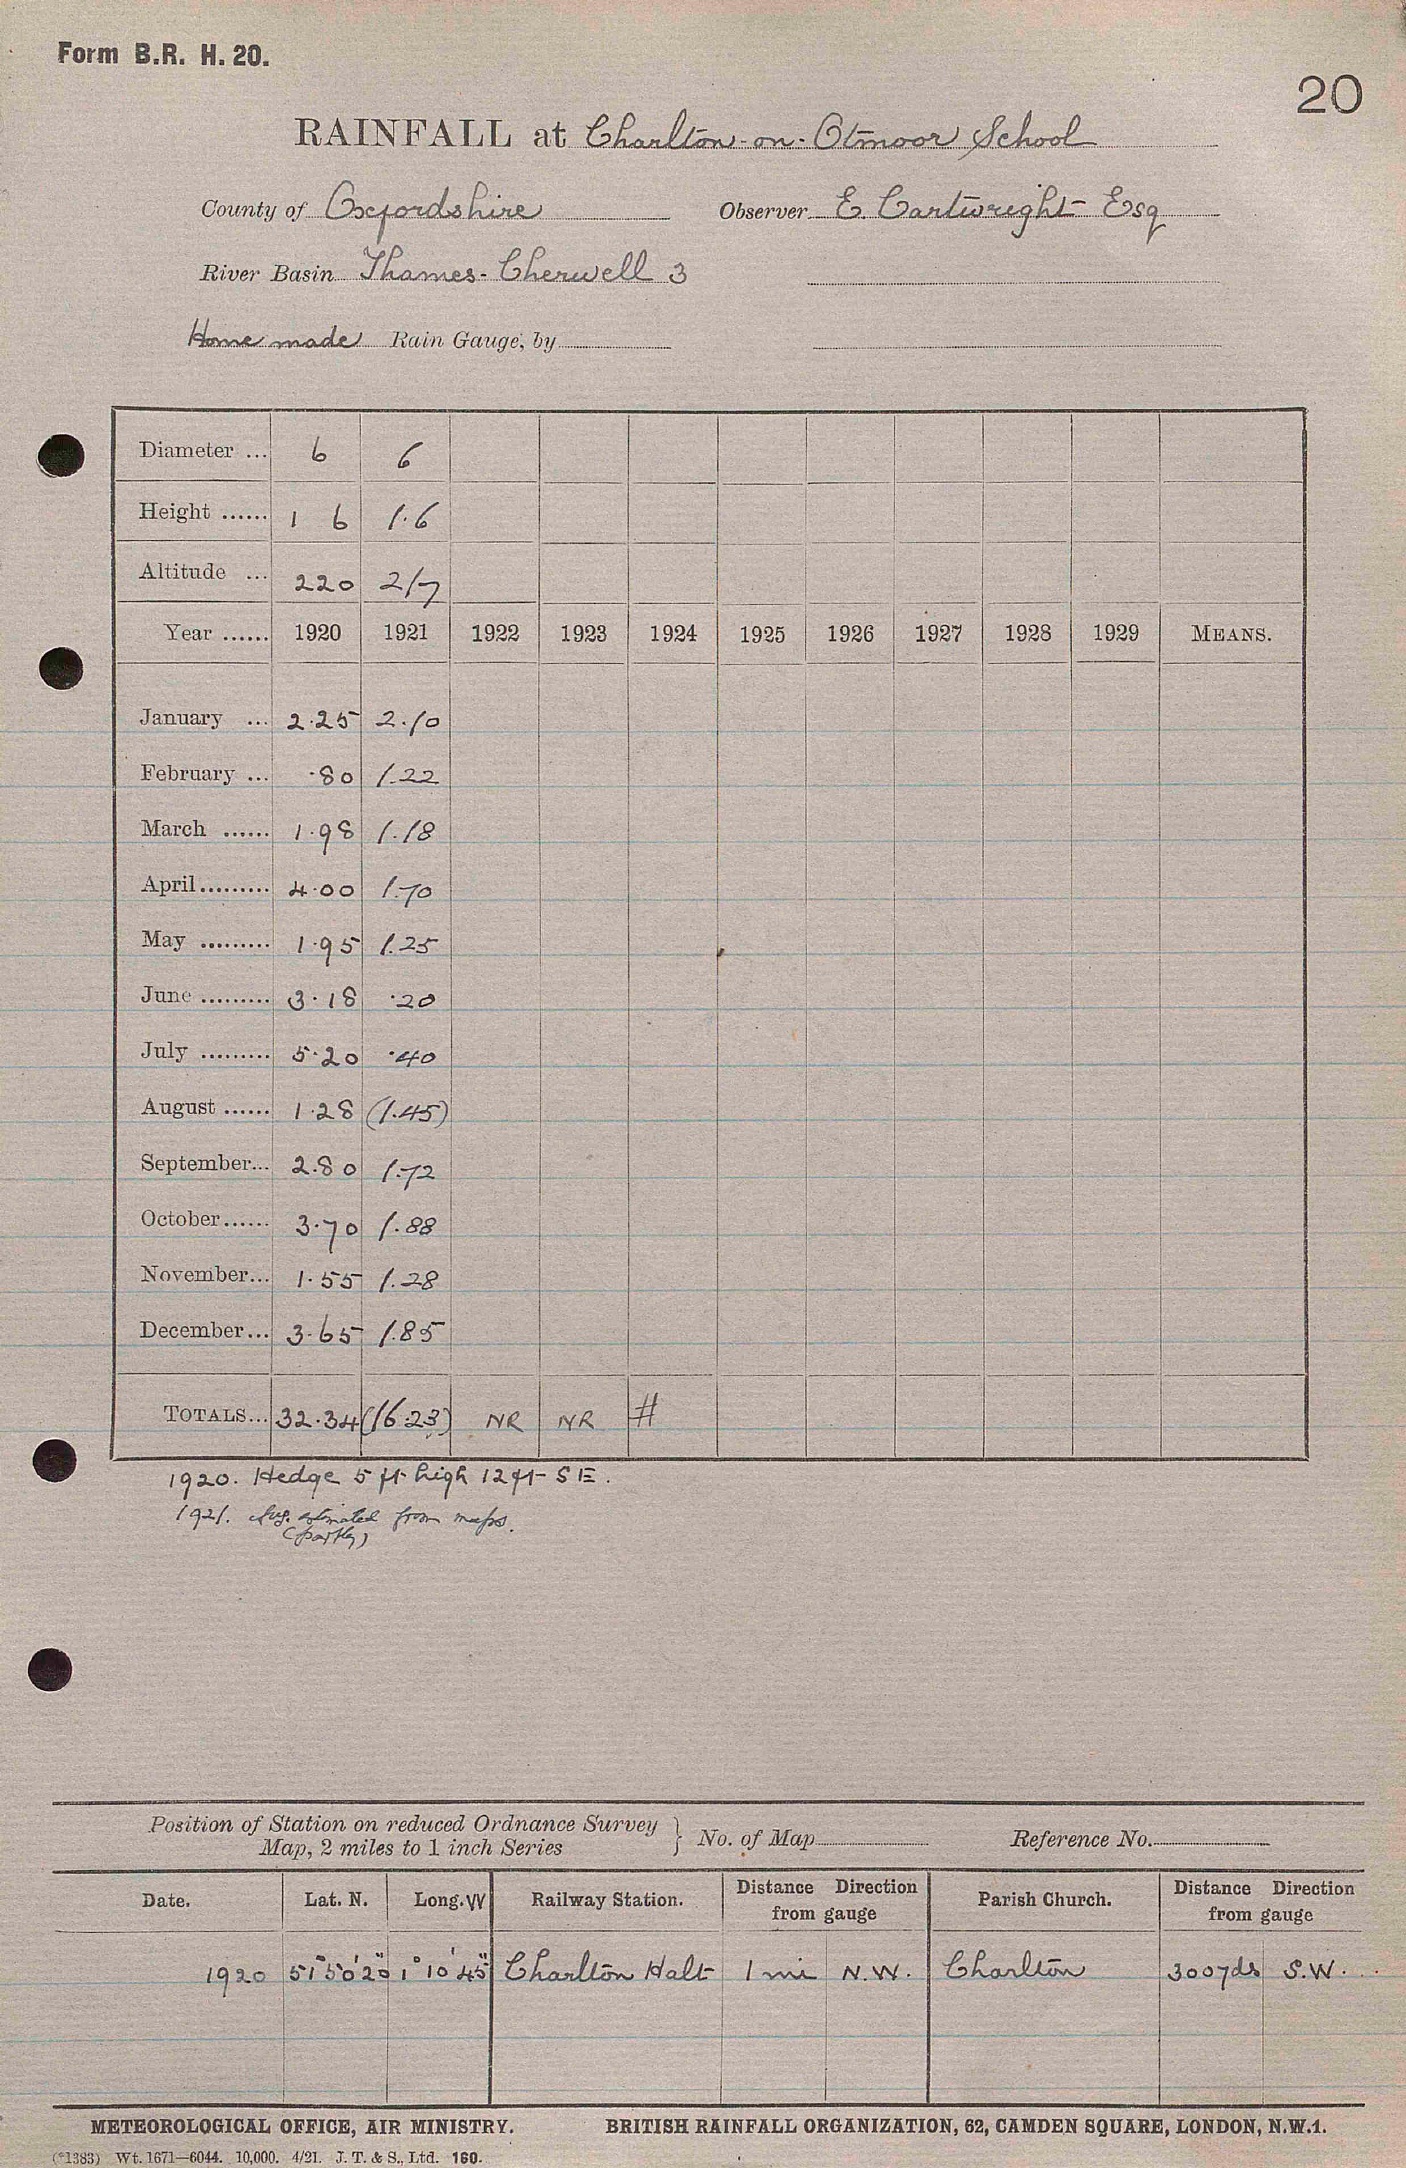 Form B.R. H. 20.
20
RAINFALL at Charlton-on-Otmoor School
County of Oxfordshire Observer E. Cartwright Esq
River Basin Thames-Cherwell 3
Home made Rain Gauge, by
Diameter ... 6 6
Height ...... 1 6 1.6
Altitude ... 220 217
Year ...... 1920 1921 1922 1923 1924 1925 1926 1927 1928 1929 MEANS.
January ... 2.25 2.10
February ... .80 1.22
March ...... 1.98 1.18
April ......... 4.00 1.70
May ......... 1.95 1.25
June ......... 3.18 .20
July ......... 5.20 .40
August ...... 1.28 (1.45)
September... 2.80 1.72
October...... 3.70 1.88
November... 1.55 1.28
December... 3.65 1.85
TOTALS... 32.34 (16.23) NR NR #
1920. Hedge 5 ft high 12 ft SE.
1921. Aug. estimated from maps.
(partly)
Position of Station on reduced Ordnance Survey
Map, 2 miles to 1 inch Series } No. of Map Reference No.
Date. Lat. N. Long. W Railway Station. Distance Direction from gauge Parish Church. Distance Direction from gauge
1920 51° 50' 20" 1° 10' 45" Charlton Halt 1 mi N.W. Charlton 300yds S.W.
METEOROLOGICAL OFFICE, AIR MINISTRY. BRITISH RAINFALL ORGANIZATION, 62, CAMDEN SQUARE, LONDON, N.W.1.
(*1383) Wt. 1671—6044. 10,000. 4/21. J. T. & S., Ltd. 160.